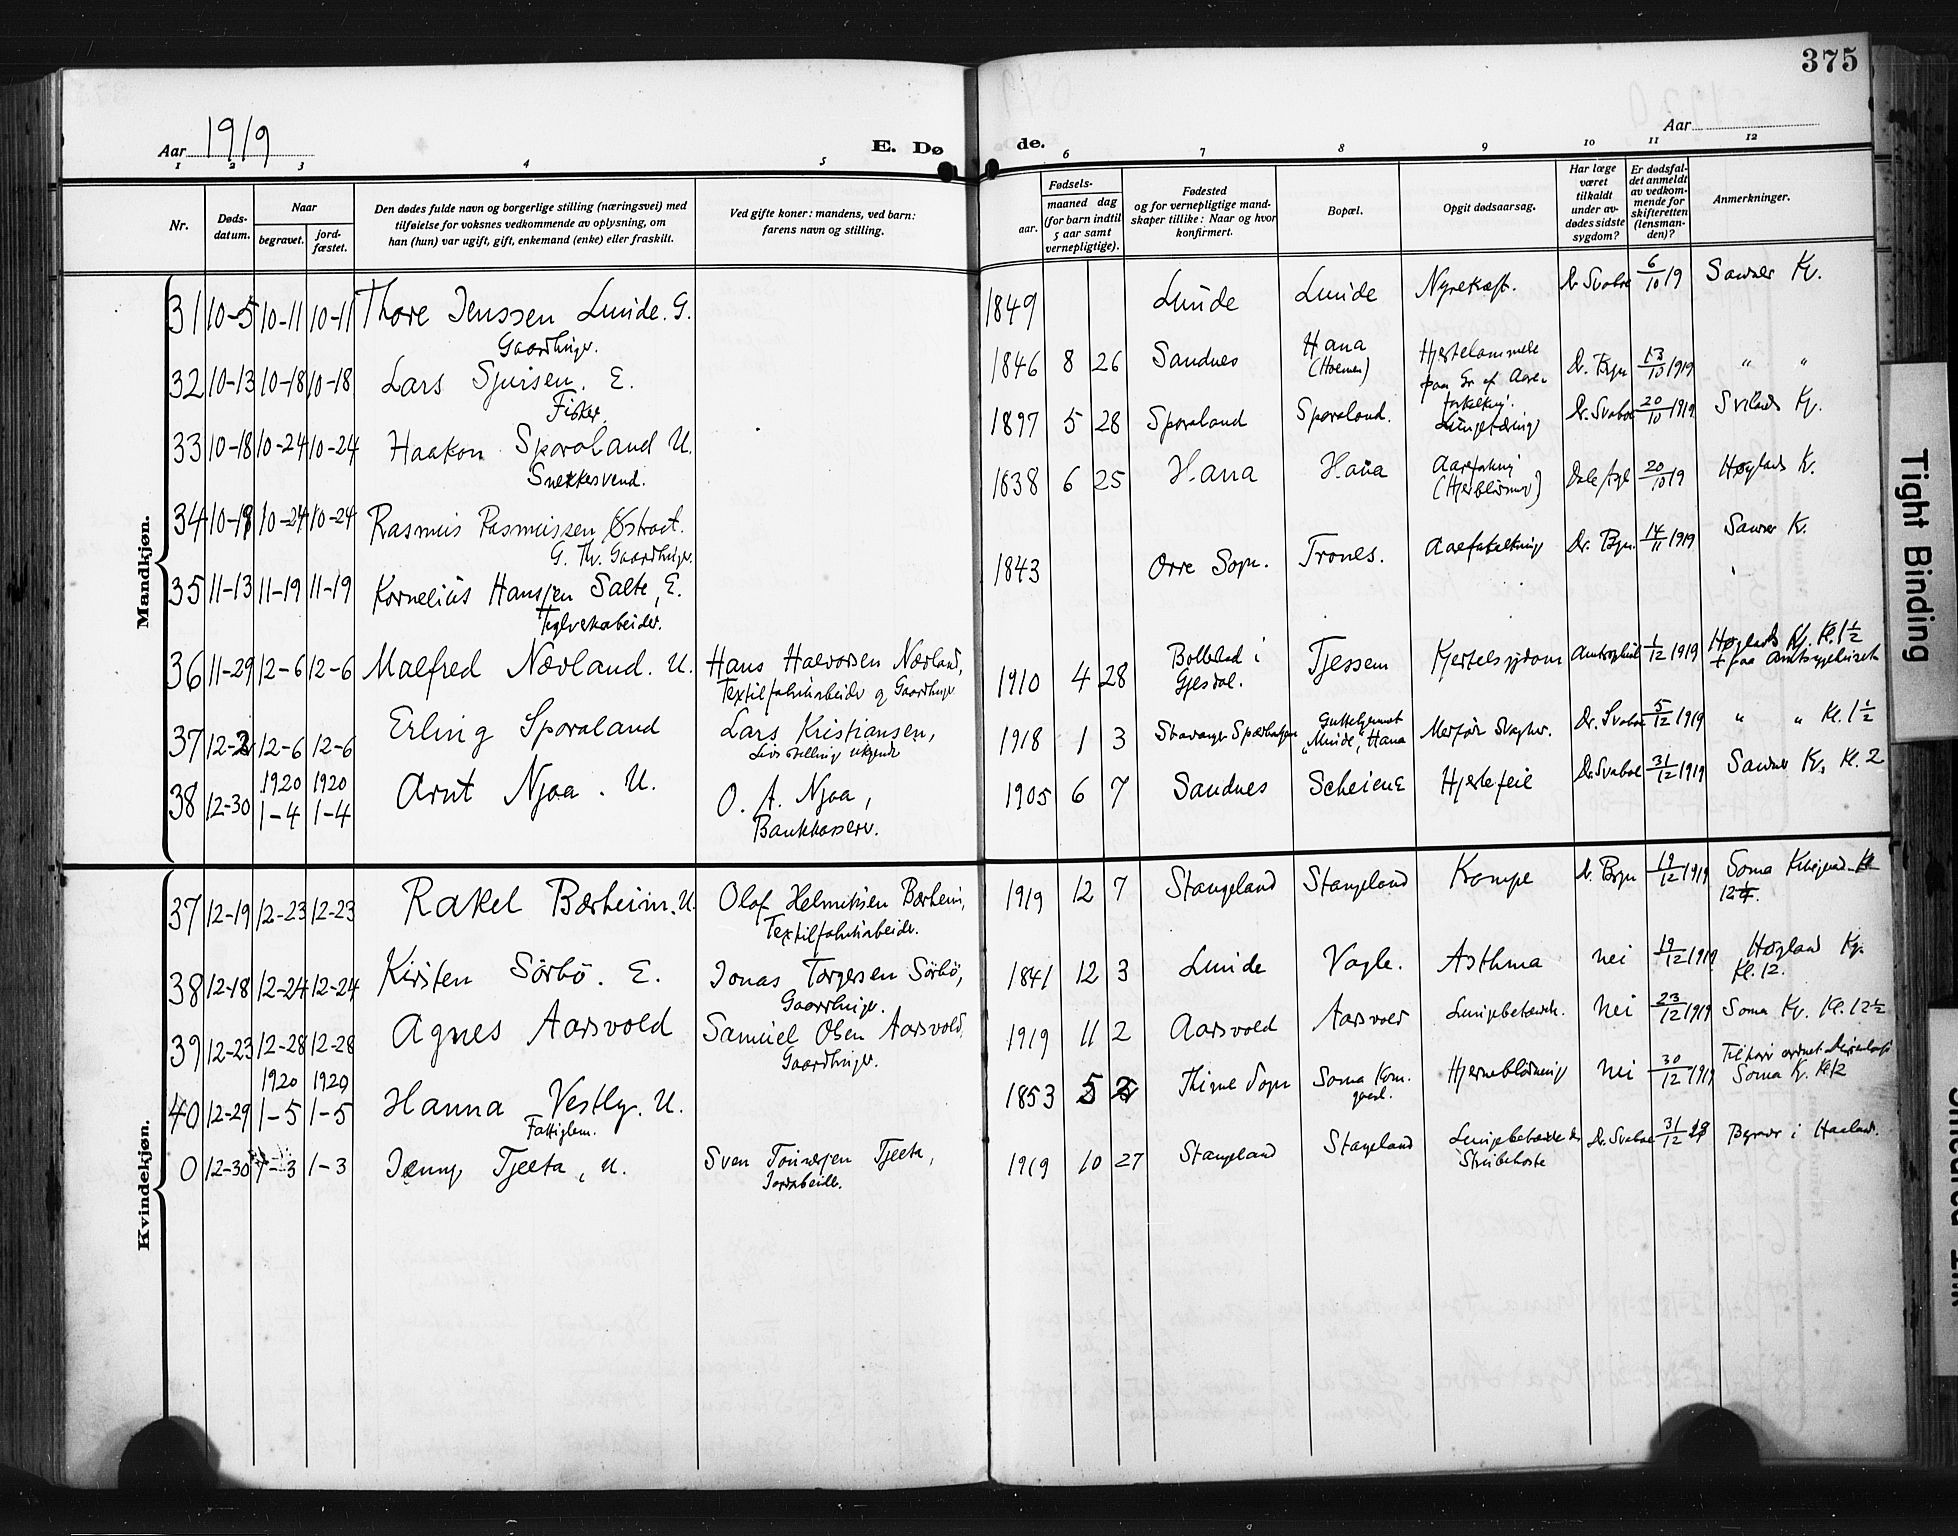 375
Aar 1919
E. Dø
de.
Aar
1 2 3 4 5 6 7 8 9 10 11 12
Nr.
Døds-
datum.
Naar
begravet.
jord-
fæstet.
Den dødes fulde navn og borgerlige stilling (næringsvei) med
tilføielse for voksnes vedkommende av oplysning, om
han (hun) var ugift, gift, enkemand (enke) eller fraskilt.
Ved gifte koner: mandens, ved barn:
farens navn og stilling.
Fødsels-
aar.
maaned dag
(for barn indtil
5 aar samt
vernepligtige).
Fødested
og for vernepligtige mand-
skaper tillike: Naar og hvor
konfirmert.
Bopæl.
Opgit dødsaarsag.
Har læge
været
tilkaldt
under av-
dødes sidste
sygdom?
Er dødsfal-
det anmeldt
av vedkom-
mende for
skifteretten
(lensman-
den)?
Anmerkninger.
Mandkjøn.
31 10-5 10-11 10-11 Thore Jenssen Lunde. G. 1849 Lunde Lunde Nyrekræft. Dr Svaboe 6/10 19
Gaardbruger.
32 10-13 10-18 10-18 Lars Sjursen. E. 1846 8 26 Sandnes Hana Dr. Bryn 13/10 1919 " "
Fisker.
33 10-18 10-24 10-24 Haakon Sporaland U. 1897 5 28 Sporaland Sporaland. Dr. Svaboe 20/10 1919
Snekkersvend.
34 10-19 10-24 10-24 Rasmus Rasmussen Østraat. 1838 6 25 Hana Hana 20/10 19
35 11-13 11-19 11-19 Kornelius Hanssen Salte, E. 1843 Orre Sogn. Trones. Dr. Bryn. 14/11 1919
36 11-29 12-6 12-6 Malfred Nævland. U. Hans Halvorsen Nævland, 1910 4 28 Gjesdal. Tjessem 1/12 1919 Kl. 1½
37 12-2 12-6 12-6 Erling Sporaland Lars Kristiansen, 1918 1 3 Dr. Svaboe 5/12 1919 " " Kl. 1½
Livsstilling ukjendt
38 12-30 1920 1-4 1920 1-4 Arnt Njaa. U. O. A. Njaa, 1905 6 7 Sandnes Scheiene Hjertefeil Dr Svaboe 31/12 1919 Kl. 2
Bankkasserer.
Kvindekjøn.
37 12-19 12-23 12-23 Rakel Bærheim. U. Olaf Helmiksen Bærheim, 1919 12 7 Stangeland Stangeland Krampe Dr. Bryn 19/12 1919
38 12-18 12-24 12-24 Kirsten Sörbö. E. Jonas Torgersen Sörbö, 1841 12 3 Lunde Vagle. Asthma nei 19/12 1919 Høyland Kg.
Gaardbruger. Kl. 12.
39 12-23 12-28 12-28 Agnes Aarsvold Samuel Olsen Aarsvold. 1919 11 2 Aarsvold Aarsvold nei 23/12 1919 Soma Kg. Kl. 12½
Gaardbruger.
40 12-29 1920 1-5 1920 1-5 Hanna Vestly. U. 1853 5 Thime Sogn Soma Kom. Hjerneblödning nei 30/12 1919 Soma Kg. Kl 2
Fattiglem. gaard.
0 12-30 1-3 1-3 Jenny Tjelta, U. Sven Tönnesen Tjelta, 1919 10 27 Stangeland Stangeland Dr. Svaboe 31/12 19
Jordarbeider. Strubehoste
Tight Binding